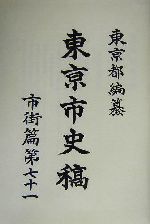 東京都編纂
東京市史稿
市街篇第七十一